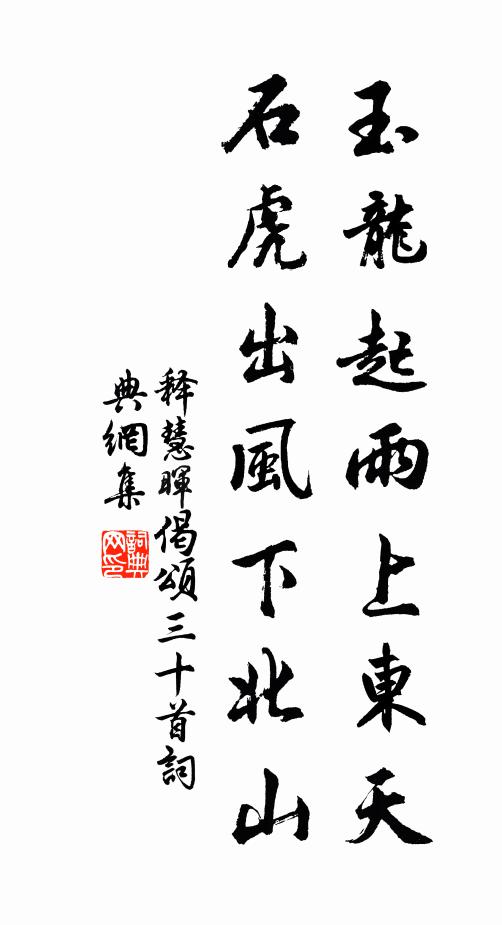 玉龍起雨上東天
石虎出風下北山
释慧暉偈頌三十首詞
典網集
詞典
网印